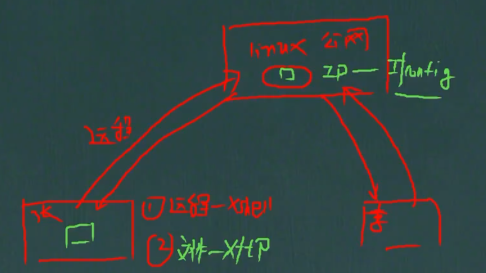 linux 公网
IP — Ifconfig
远程
张
① 远程—Xshell
② 文件—Xftp
李